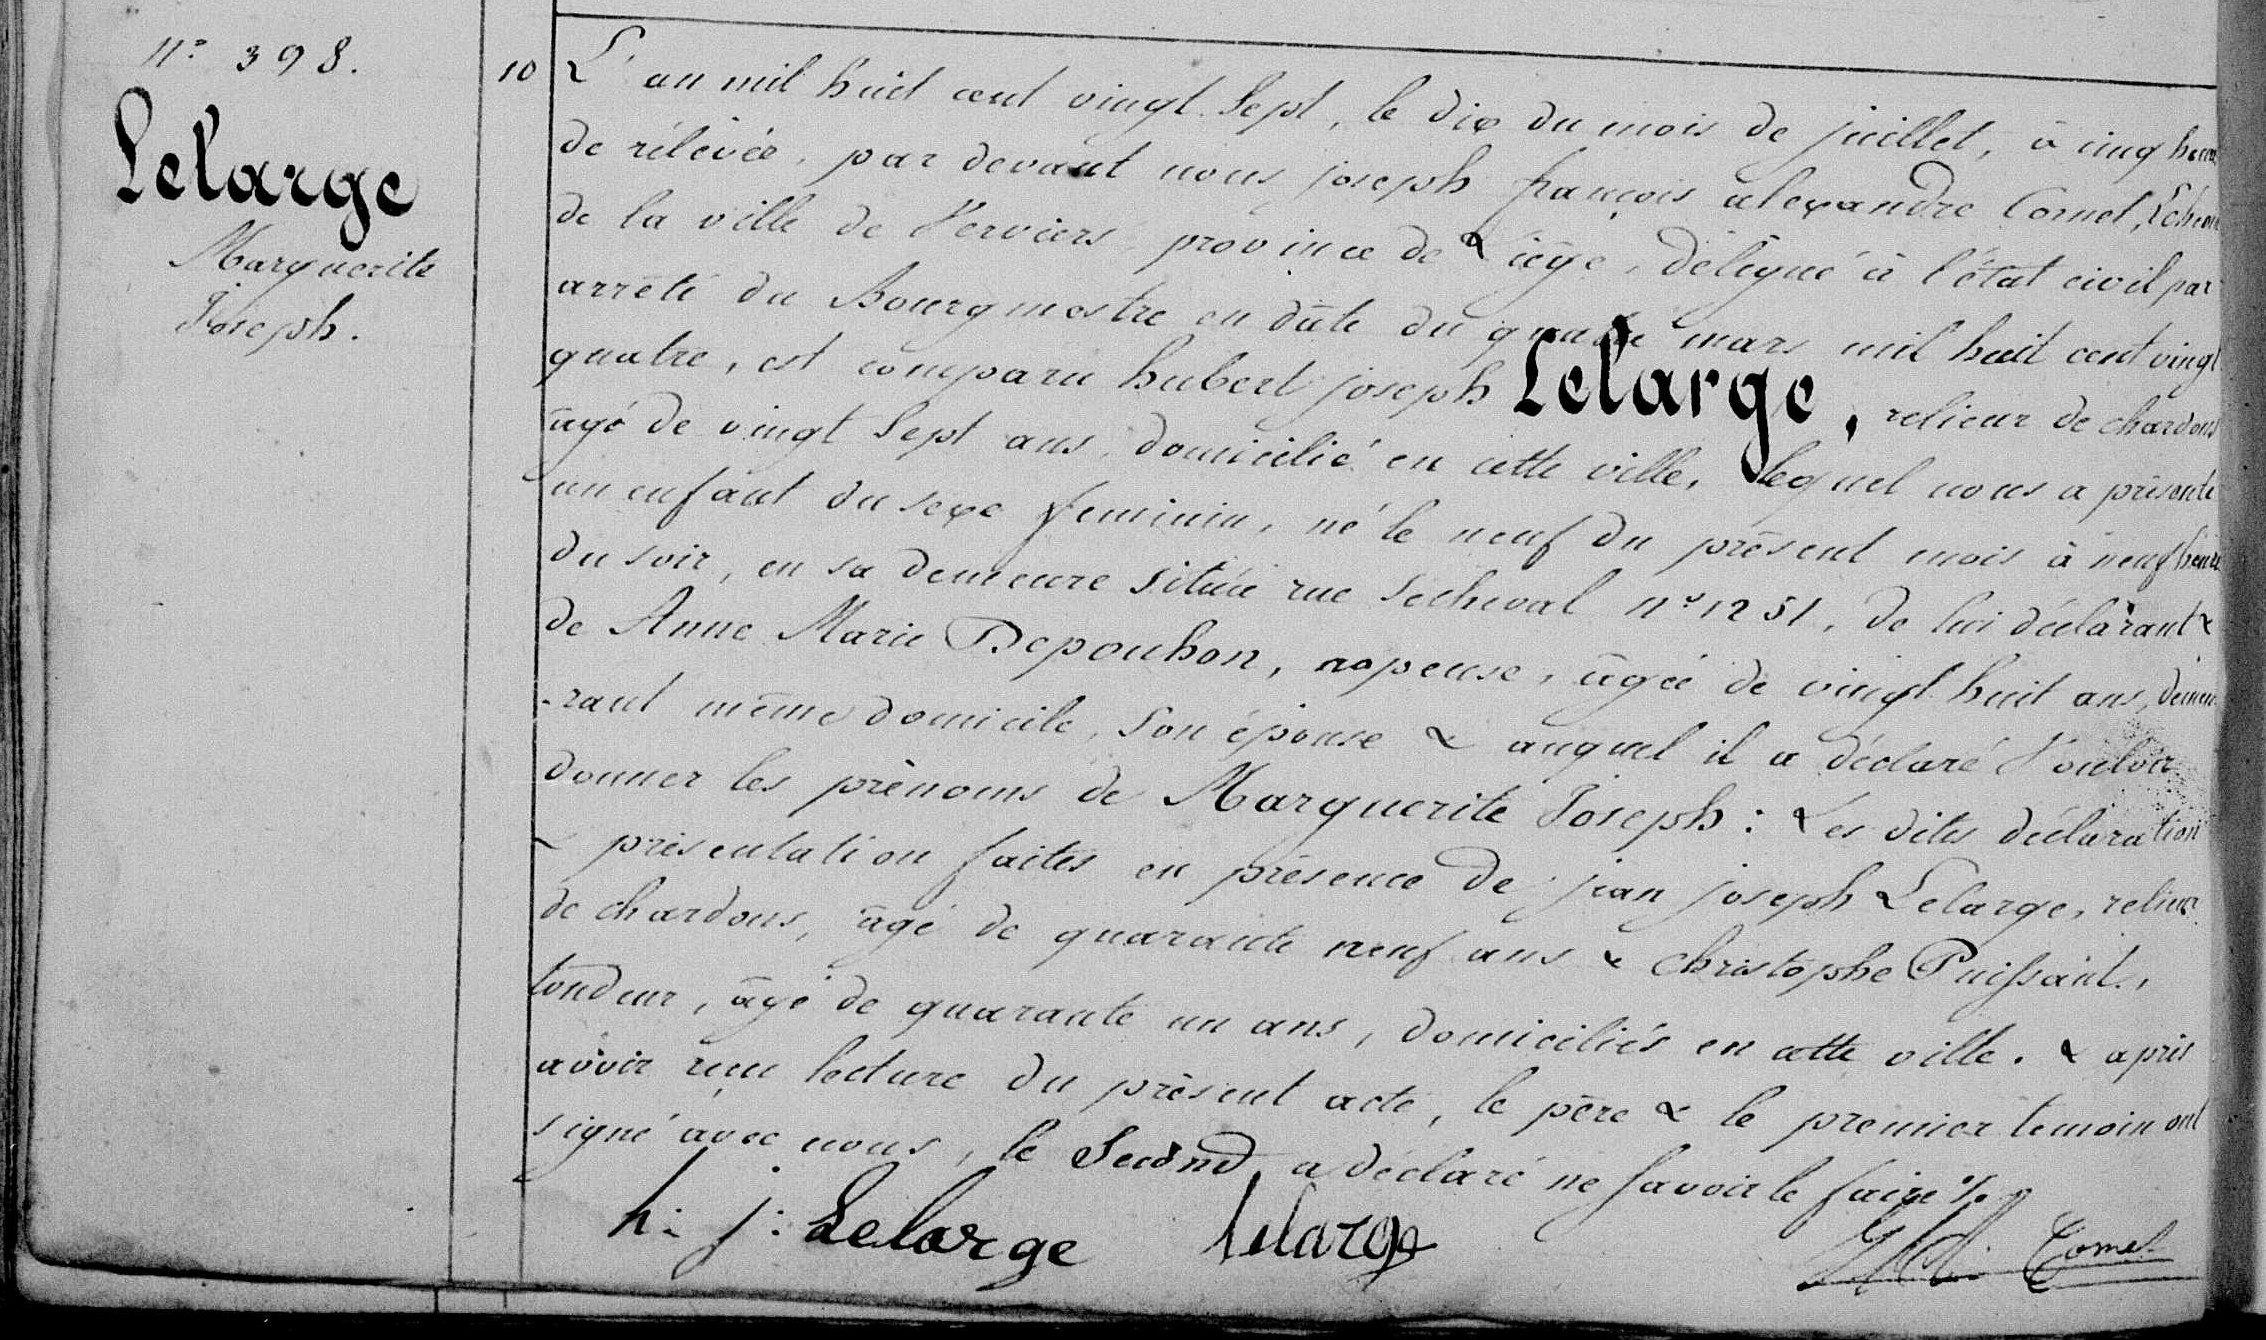 N.o 398.
Lelarge
Marguerite
Joseph.
10
L'an mil huit cent vingt Sept, le dix du mois de juillet, à cinq heures
de rélévée, par devant nous joseph françois alexandre Cornet, Echevin
de la ville de Verviers province de Liège, délégué à l'état civil par
arrêté du Bourgmestre en date du quatre mars mil huit cent vingt
quatre, est comparu hubert joseph Lelarge, relieur de chardons
âgé de vingt Sept ans, domicilié en cette ville, lequel nous a présenté
un enfant du sexe feminin, né le neuf du présent mois à neuf heures
du soir, en sa demeure située rue secheval N.o 1251, de lui déclarant &
de Anne Marie Depouhon, nopeuse, âgée de vingt huit ans, demeu
-rant même domicile, son épouse & auquel il a déclaré Vouloir
donner les prénoms de Marguerite Joseph : Les dites déclaration
& présentation faites en présence de jean joseph Lelarge, relieur
de chardons, âgé de quarante neuf ans & christophe Puissant,
tondeur, âgé de quarante un ans, domiciliés en cette ville. & après
avoir reçu lecture du présent acte, le père & le premier temoin ont
signé avec nous, le Second a déclaré ne savoir le faire %
h: j: Lelarge Lelarge Cornet